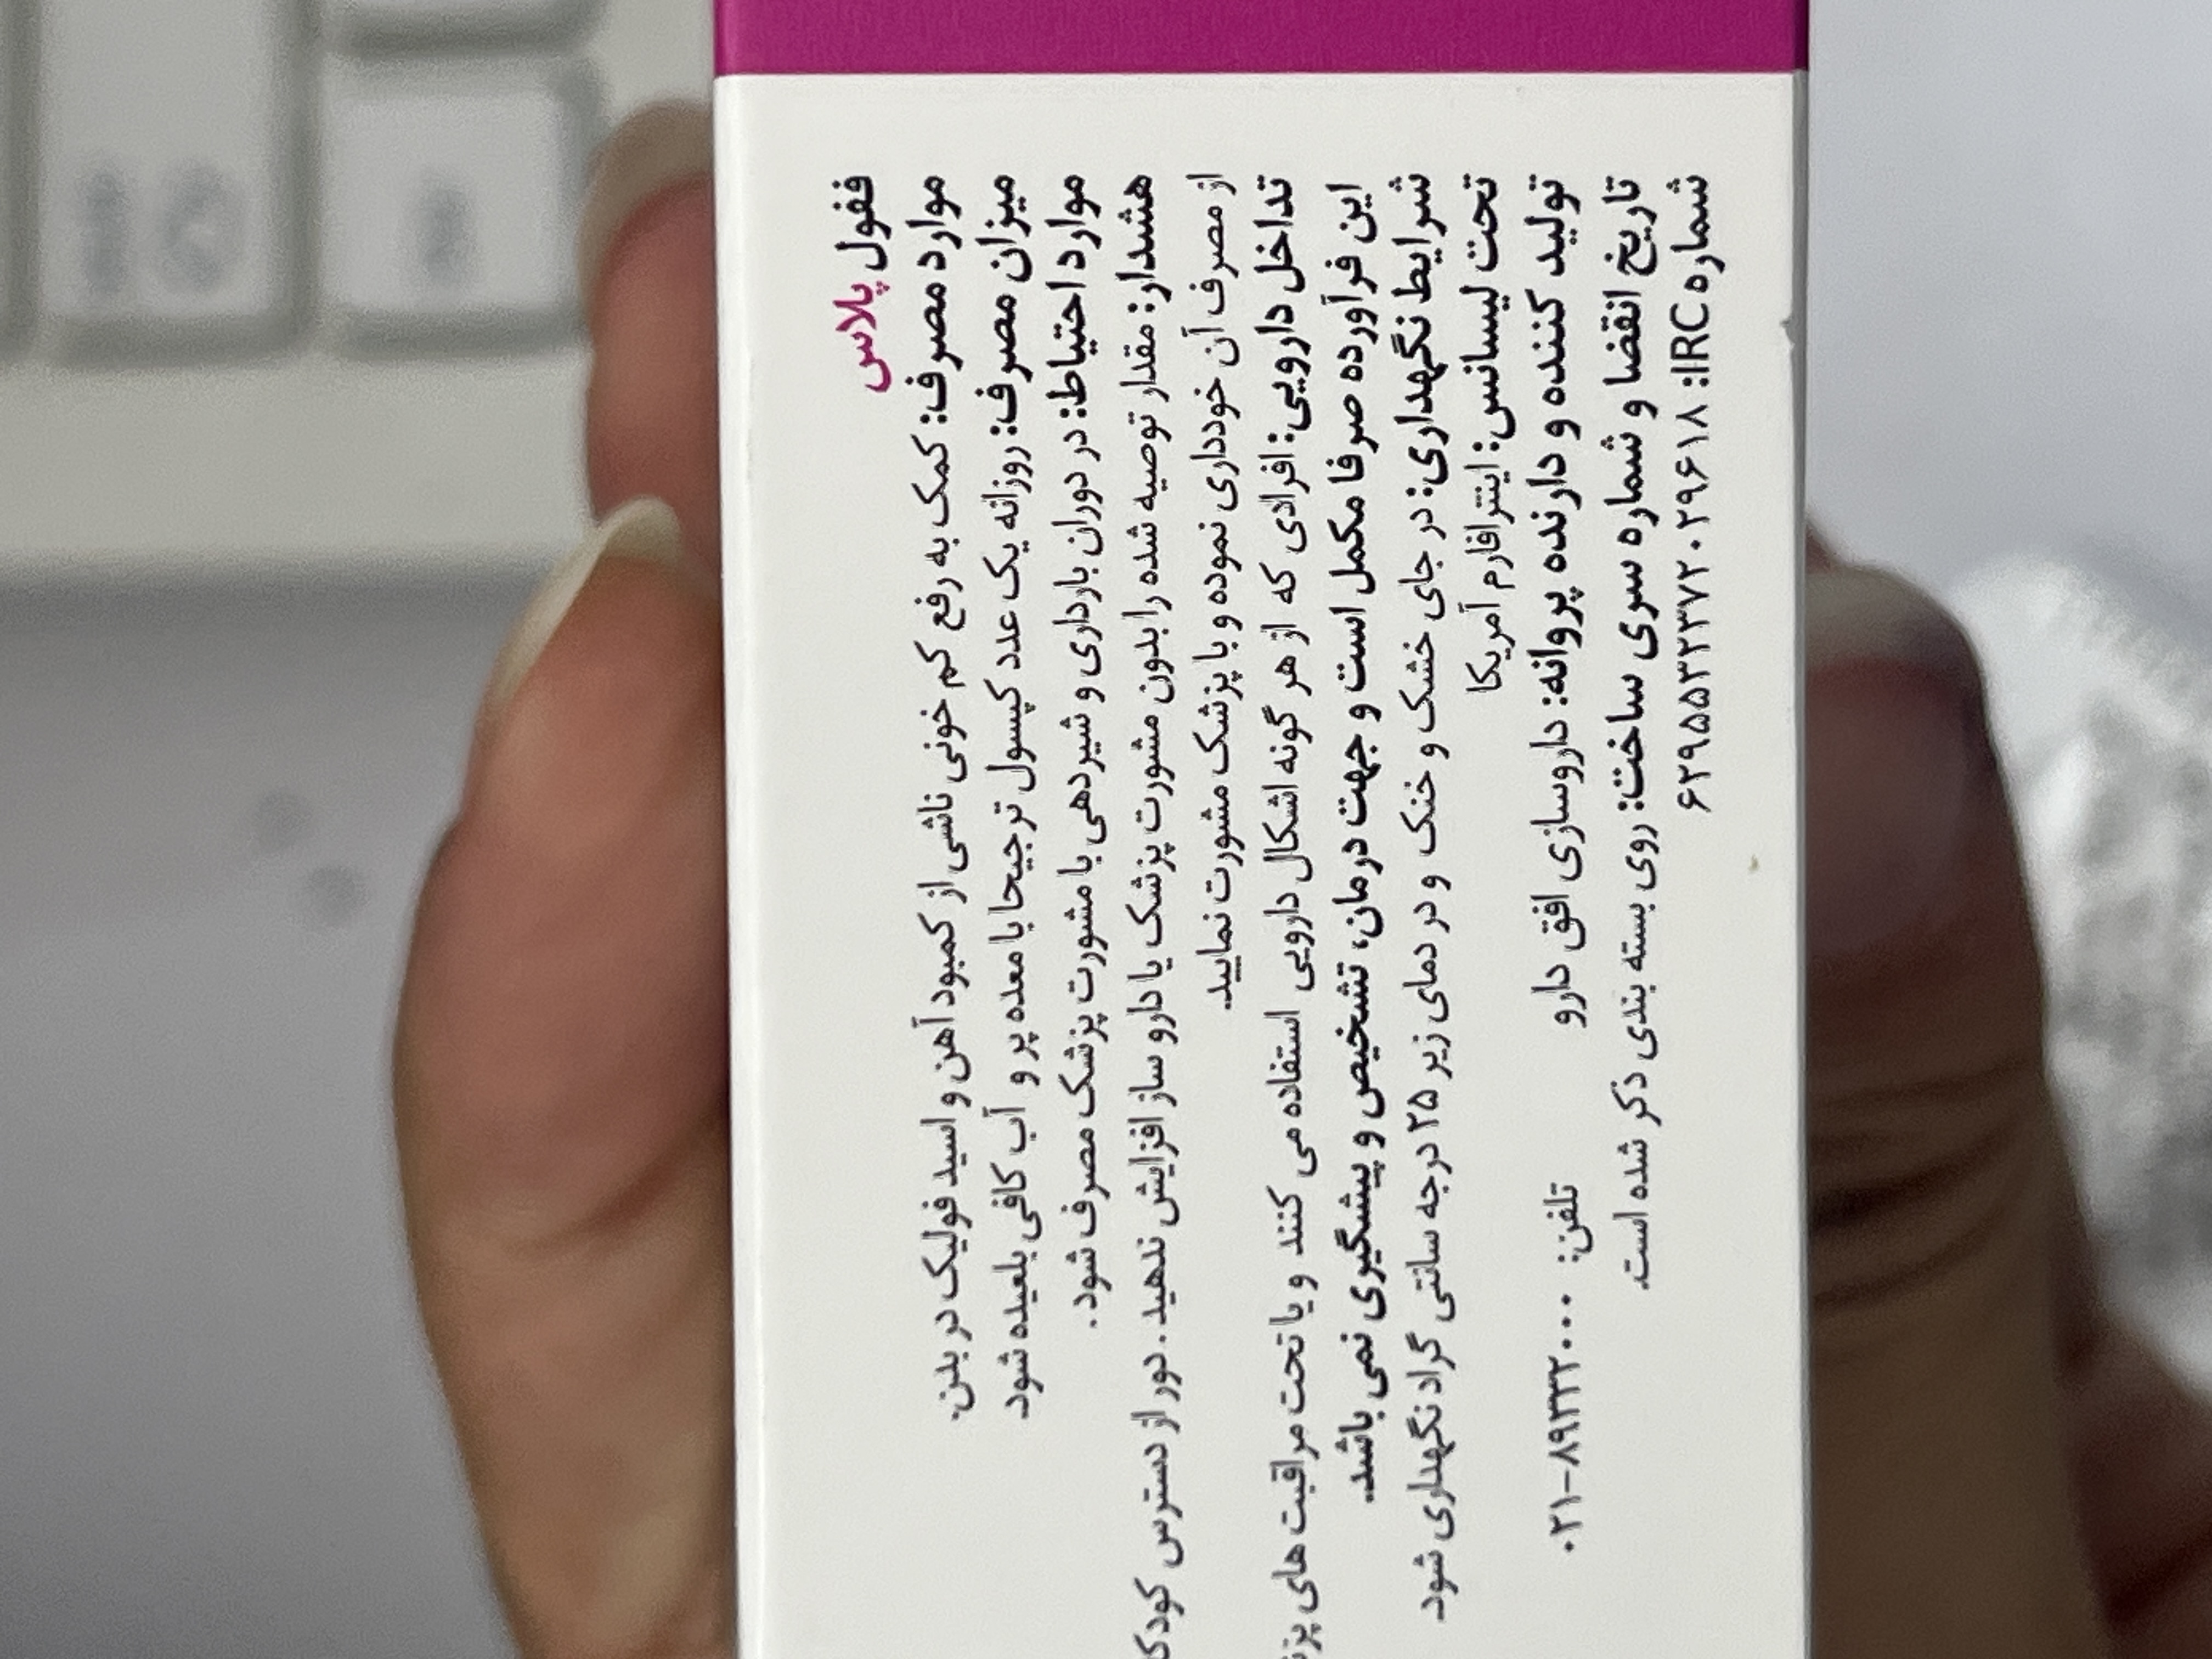 ففول پلاس
موارد مصرف: کمک به رفع کم خونی ناشی از کمبود آهن و اسید فولیک در بدن.
میزان مصرف: روزانه یک عدد کپسول ترجیحا با معده پر و آب کافی بلعیده شود
موارد احتیاط: در دوران بارداری و شیردهی با مشورت پزشک مصرف شود.
هشدار: مقدار توصیه شده را بدون مشورت پزشک یا دارو ساز افزایش ندهید. دور از دسترس
از مصرف آن خودداری نموده و با پزشک مشورت نمایید.
تداخل دارویی: افرادی که از هر گونه اشکال دارویی استفاده می کنند و یا تحت مراقبت های
این فرآورده صرفا مکمل است و جهت درمان، تشخیص و پیشگیری نمی باشد.
شرایط نگهداری: در جای خشک و خنک و در دمای زیر ۲۵ درجه سانتی گراد نگهداری شود.
تحت لیسانس: اینترافارم آمریکا
تولید کننده و دارنده پروانه: داروسازی افق دارو تلفن: ۸۹۳۳۲۰۰۰-۰۲۱
تاریخ انقضا و شماره سری ساخت: روی بسته بندی ذکر شده است.
شماره IRC: ۶۲۹۵۵۳۲۳۷۲۰۲۹۶۱۸